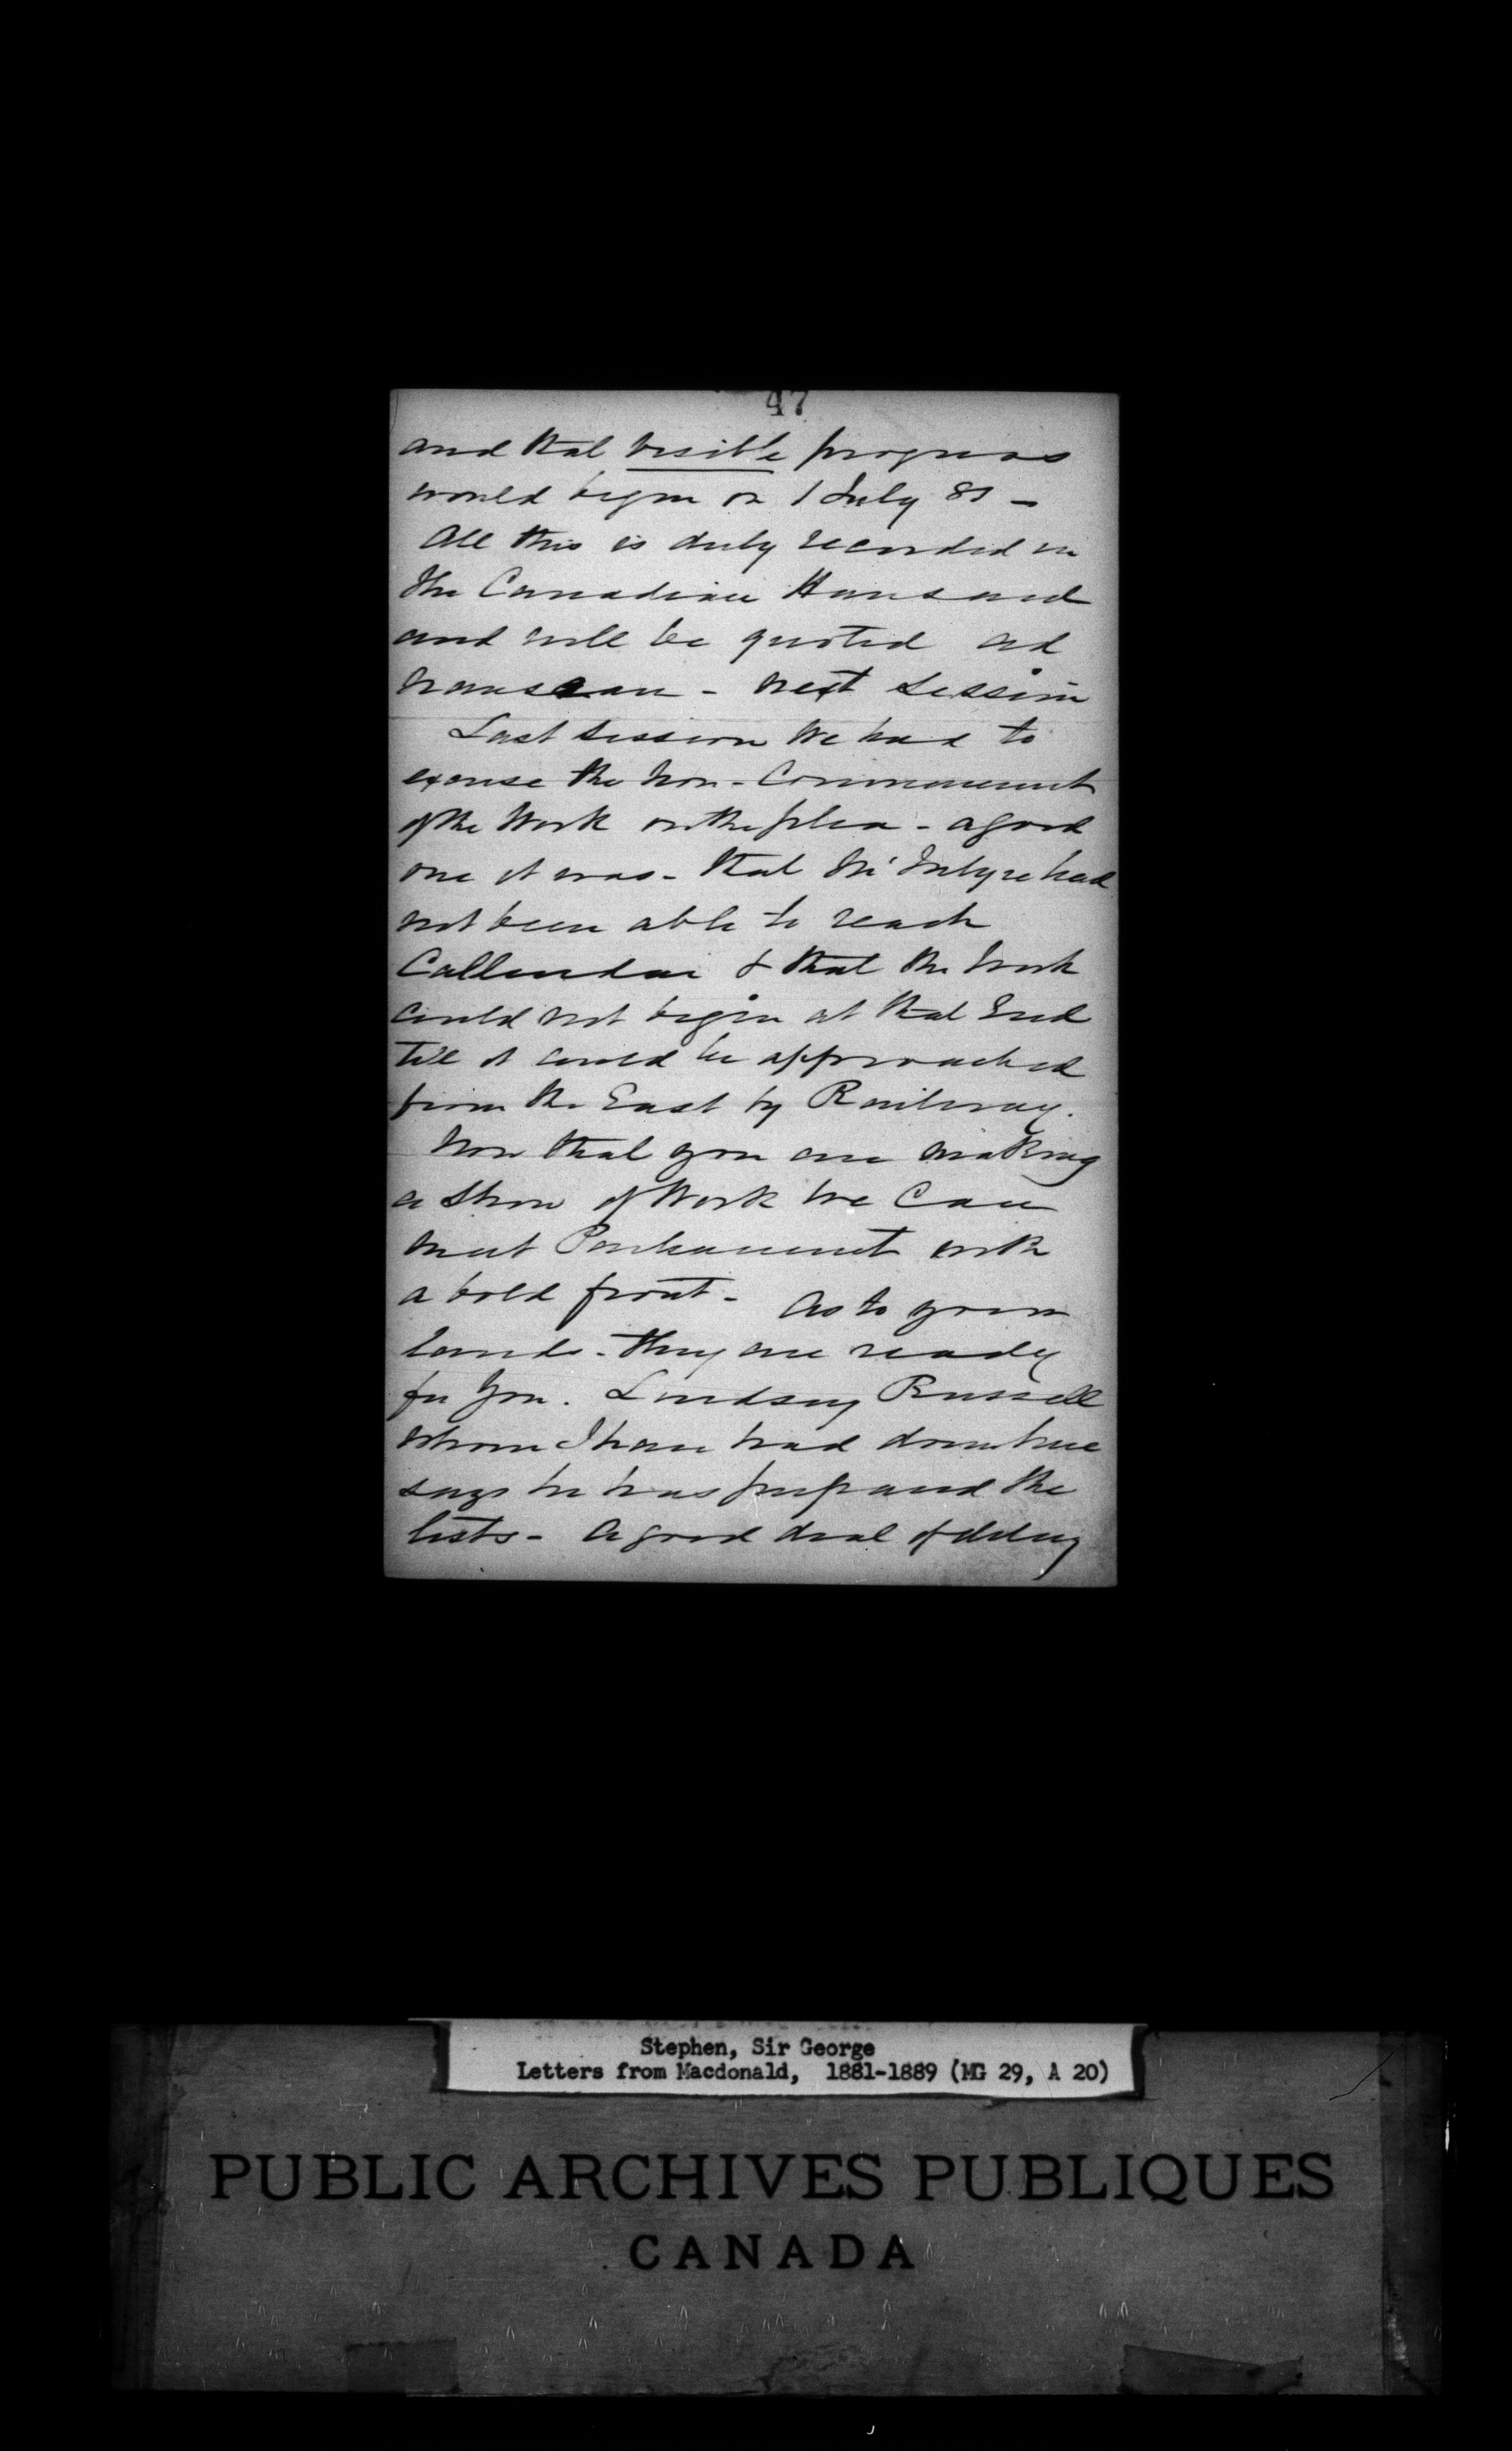 47
and that visible progress
would begin on 1 July 81 –
All this is duly recorded in
the Canadian Hansard
and will be quoted ad
nauseam – next session
Last session we had to
excuse the non-commencement
of the work on the plea – a good
one it was – that McIntyre had
not been able to reach
Callendar & that the work
could not begin at that end
till it could be approached
from the East by Railway.
Now that you are making
a show of work we can
meet Parliament with
a bold front – As to your
lands – they are ready
for you. Lindsay Russell
whom I have had down here
says he has prepared the
lists – A good deal of delay
Stephen, Sir George
Letters from Macdonald, 1881-1889 (MG 29, A 20)
PUBLIC ARCHIVES PUBLIQUES
CANADA